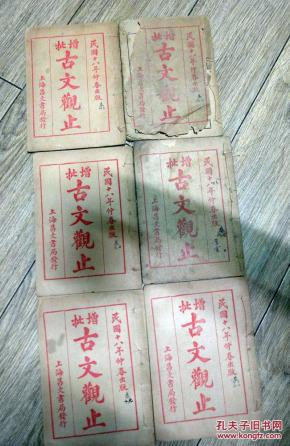 民國十八年仲春出版
增批
古文觀止
上海昌文書局發行
民國十八年仲春出版
增批
古文觀止
上海昌文書局發行
民國十八年仲春出版
增批
古文觀止
上海昌文書局發行
民國十八年仲春出版
增批
古文觀止
上海昌文書局發行
民國十八年仲春出版
增批
古文觀止
上海昌文書局發行
民國十八年仲春出版
增批
古文觀止
上海昌文書局發行
孔夫子旧书网